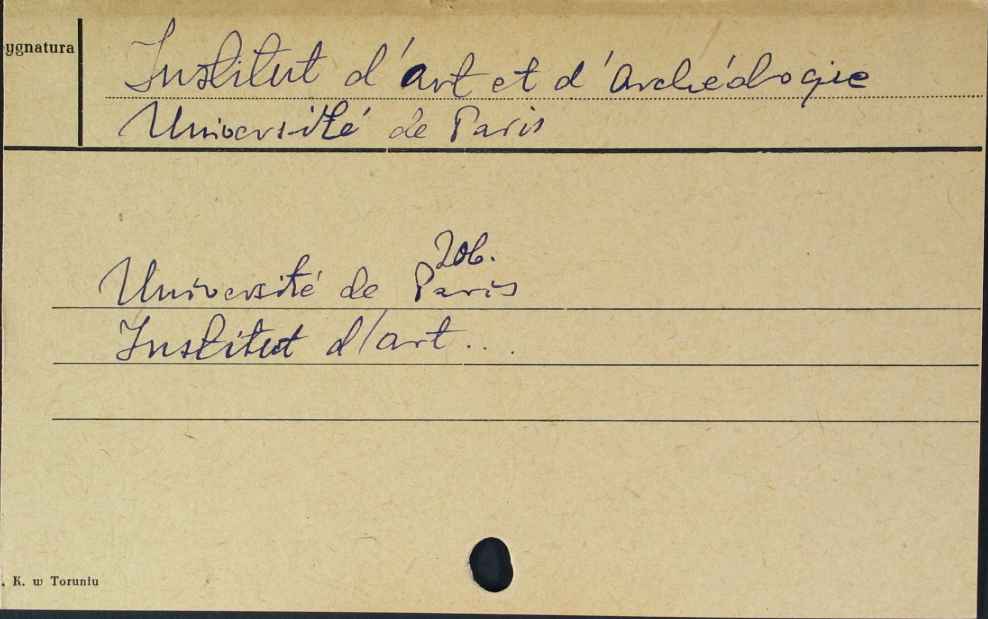 ygnatura
Institut d'art et d'Archéologie
Université de Paris
zob.
Université de Paris
Institut d'art...
. K. w Toruniu